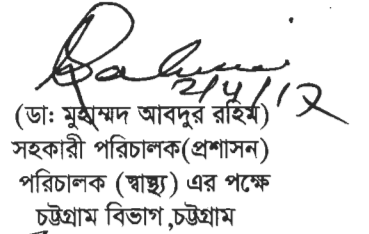 2/4/12
(ডা: মুহাম্মদ আবদুর রহিম)
সহকারী পরিচালক(প্রশাসন)
পরিচালক (স্বাস্থ্য) এর পক্ষে
চট্টগ্রাম বিভাগ,চট্টগ্রাম